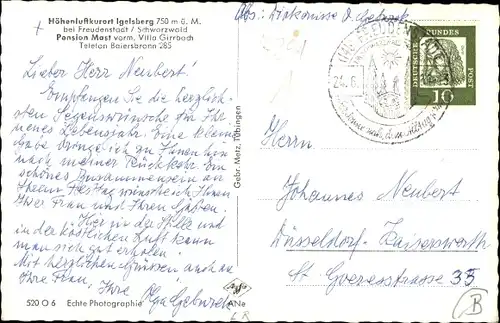 Höhenluftkurort Igelsberg 750 m ü. M.
bei Freudenstadt / Schwarzwald
Pension Mast vorm. Villa Girrbach
Telefon Baiersbronn 285
Lieber Herr Neubert!
Empfangen Sie die herzlich-
sten Segenswünsche für Ihr
neues Lebensjahr. Eine kleine
Gabe bringe ich Ihnen hin
nach meiner Rückkehr. Ein
schönes Zusammensein an
Ihrem Festtag wünsche ich Ihnen
Ihrer Frau und Ihren Gästen.
Hier in der Stille und
in der köstlichen Luft kann
man sich gut erholen.
Mit herzlichen Grüssen auch an
Ihre Frau, Ihre Olga Geburek
520 O 6 Echte Photographie
Gebr. Metz, Tübingen
ANe
Abs.: O. Geburek
24.6.
DEUTSCHE BUNDESPOST
10
Herrn
Johannes Neubert
Düsseldorf-Kaiserswerth
St. Goeresstrasse 35
B